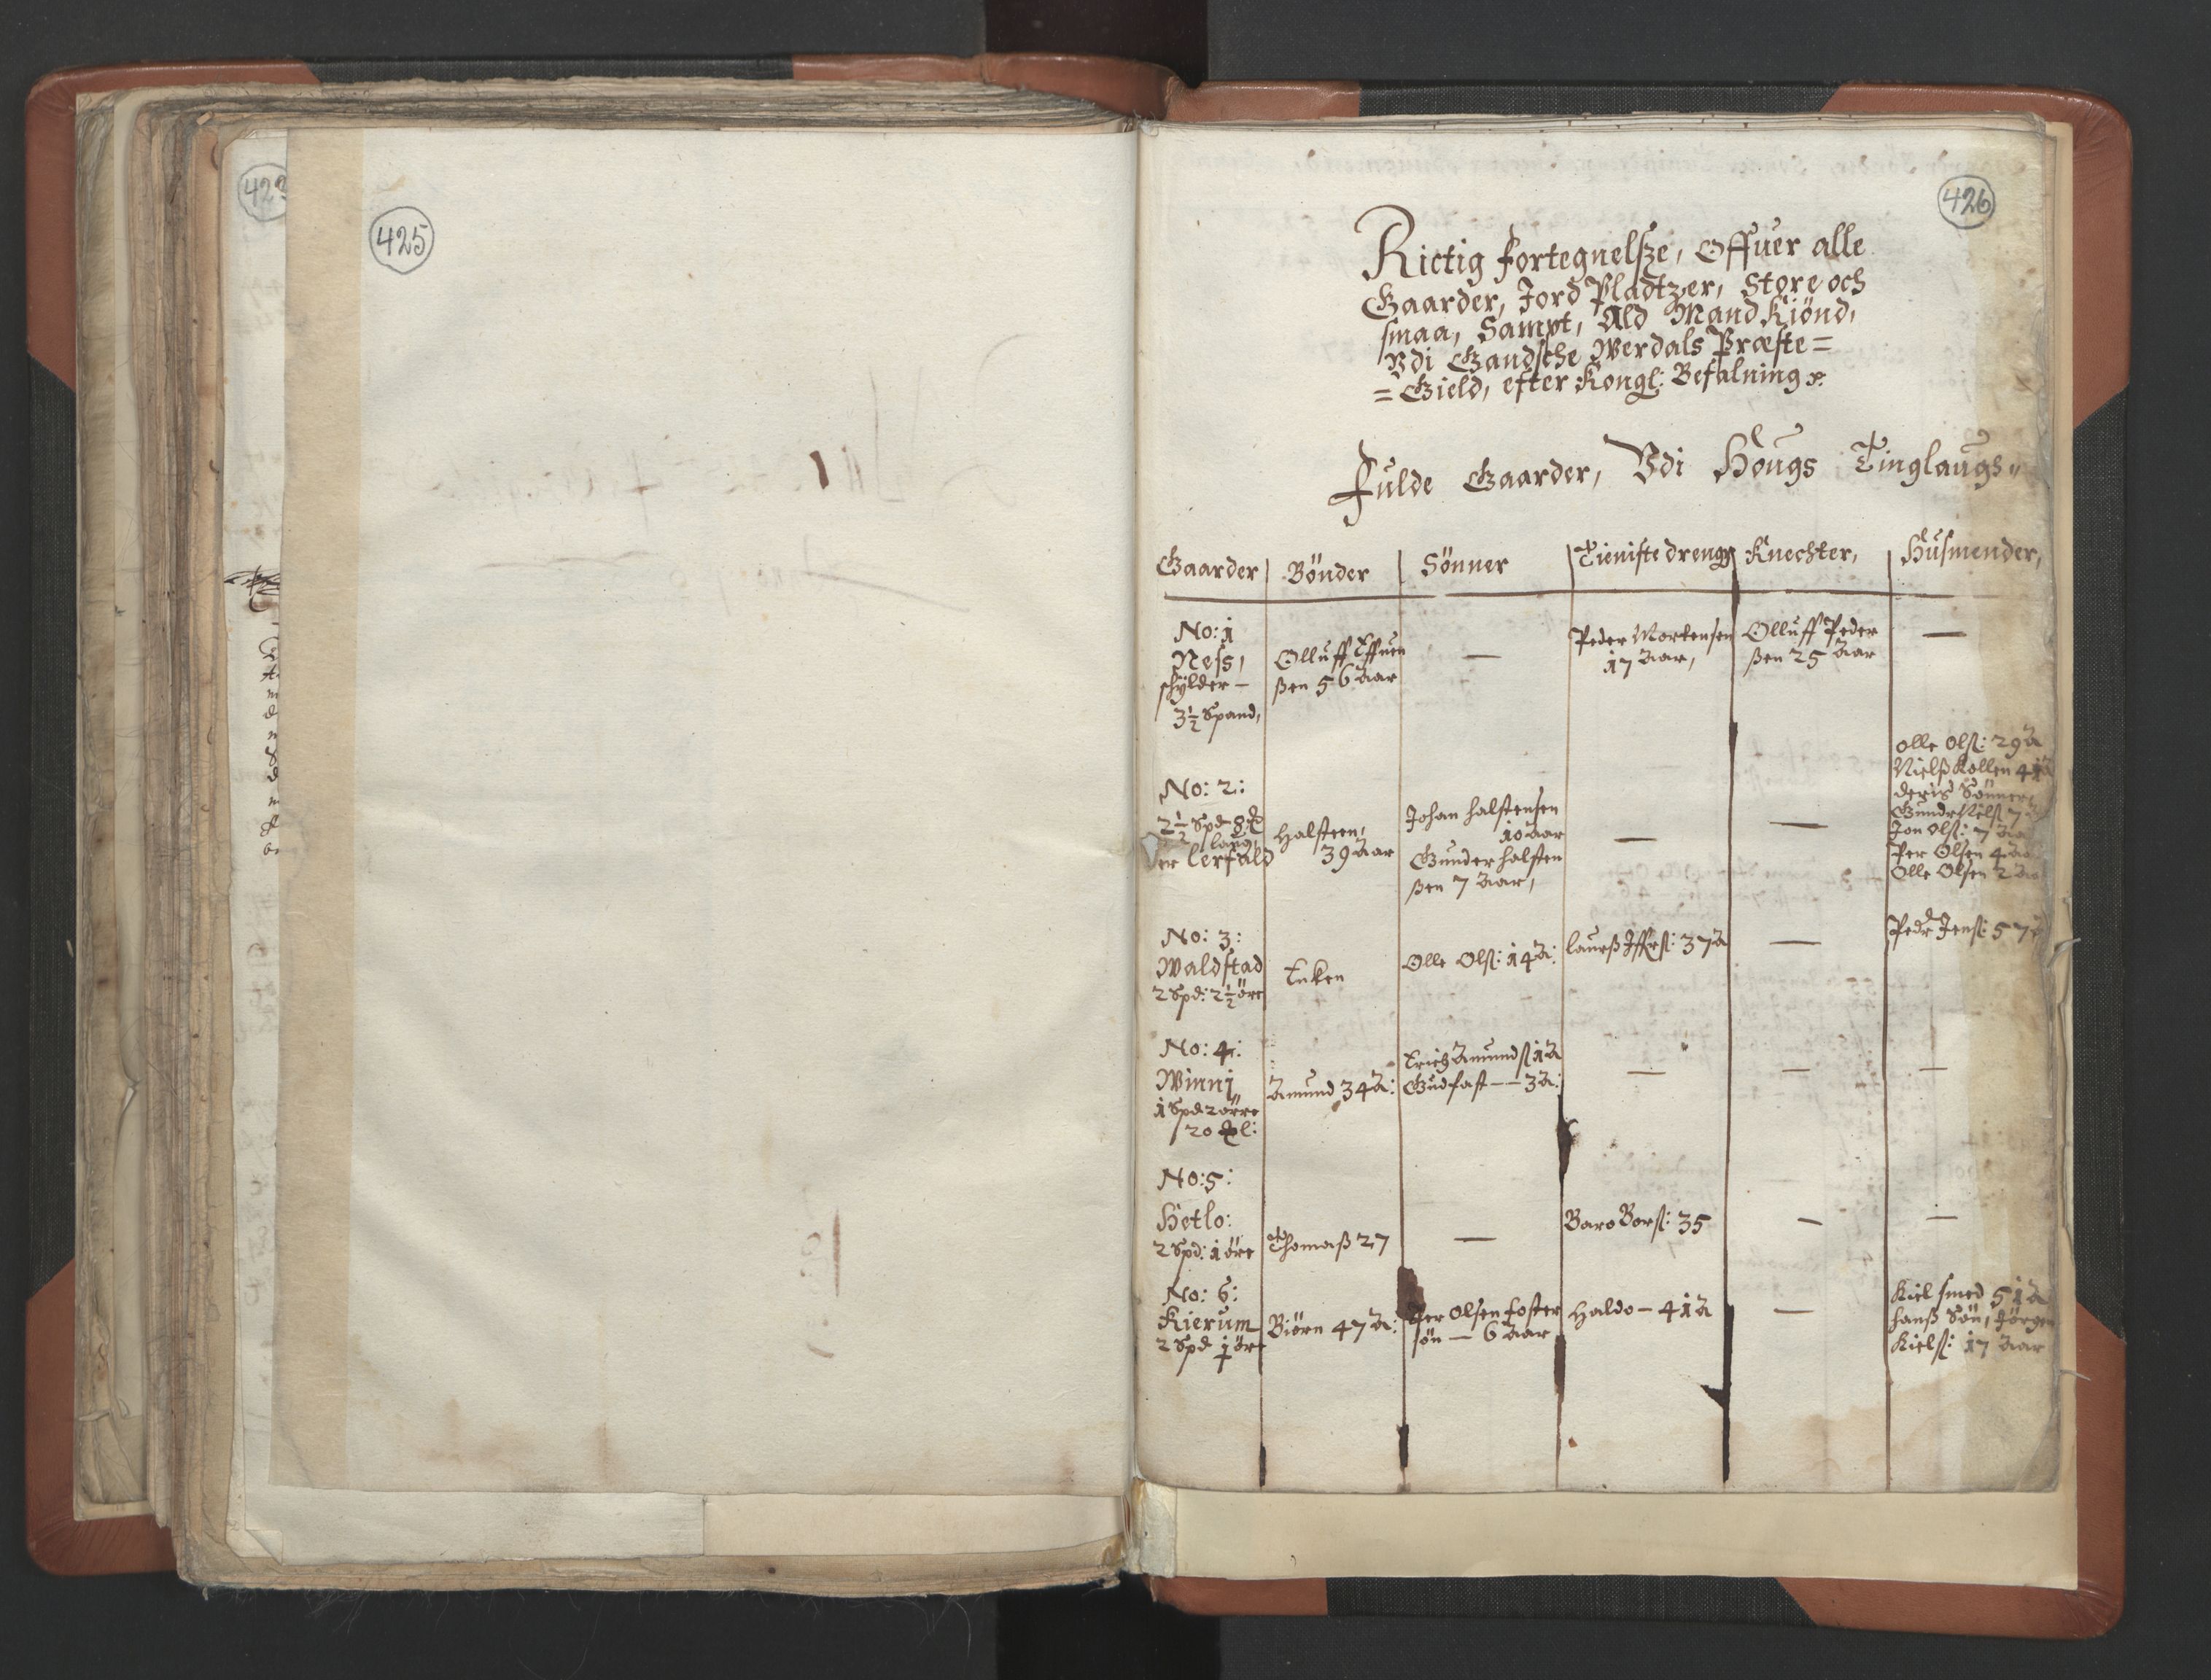 425
426
Rictig fortegnelsze, Offuer alle
Gaarder, Jord Pladtzer, Store och
smaa, Sampt, Ald Mand Kiønd,
Vdi Gandsche Werdals Præste=
=Gield, efter Kongl: Befalning
Fulde Gaarder, Vdi Hougs Tinglaugs
Gaarder Bønder Sönner Tieniste drenge Knechter, Husmender,
No: 1
Ness,
schylder -
3½ Spand,
Olluff Effuen
ßen 56 Aar
—
Peder Mortensen
17 Aar,
Olluff Peder
ßen 25 Aar
—
No: 2:
2½ Spd 8
laug
er Lerfald
Halsteen,
39 Aar
Johan Halstensen
10 Aar
Gunder Halsten
ßen 7 Aar,
—
—
Olle Olß: 29 A
Nielß Kollen 41 A
deris Sönner
Gundr Nielß 7
Jon Olß: 7 Aa
Per Olsen 4 Aa
Olle Olsen 2 Aa
No: 3:
Waldstad
2 Spd: 2½ öre
Encken
Olle Olß: 14 A:
Laurß 37 A
—
Pedr Jenß: 57
No: 4:
Winni
1 Spd 2 örre
20
Amund 34 A:
Erich Amundß 1 A
Gudfast — — 3 A:
—
—
—
No: 5:
Hetlo:
2 Spd: 1 öre
Thomaß 27
—
Baro Borß: 35
—
—
No: 6:
Kierum
2 Spd 1 öre
Biørn 47 A:
Per Olsen foster
søn — 6 Aar
Haldo — 41 A
—
Kiel smed 51 A
hanß Søn, Jørgen
Kielß: 17 Aar